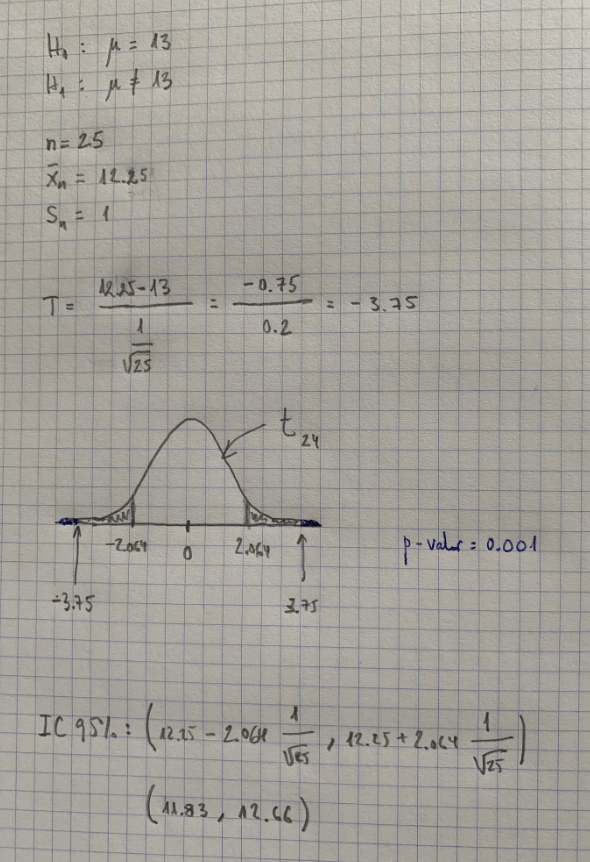 H₁ : μ = 13
H₁ : μ ≠ 13
n = 25
x̄ₙ = 12.25
Sₙ = 1
T = (12.25-13)/(1/√25) = (-0.75)/(0.2) = -3.75
t₂₄
-2.064 0 2.064
p-valor = 0.001
-3.75 3.75
IC 95%: (12.25 - 2.064 1/√25 , 12.25 + 2.064 1/√25)
(11.83 , 12.66)